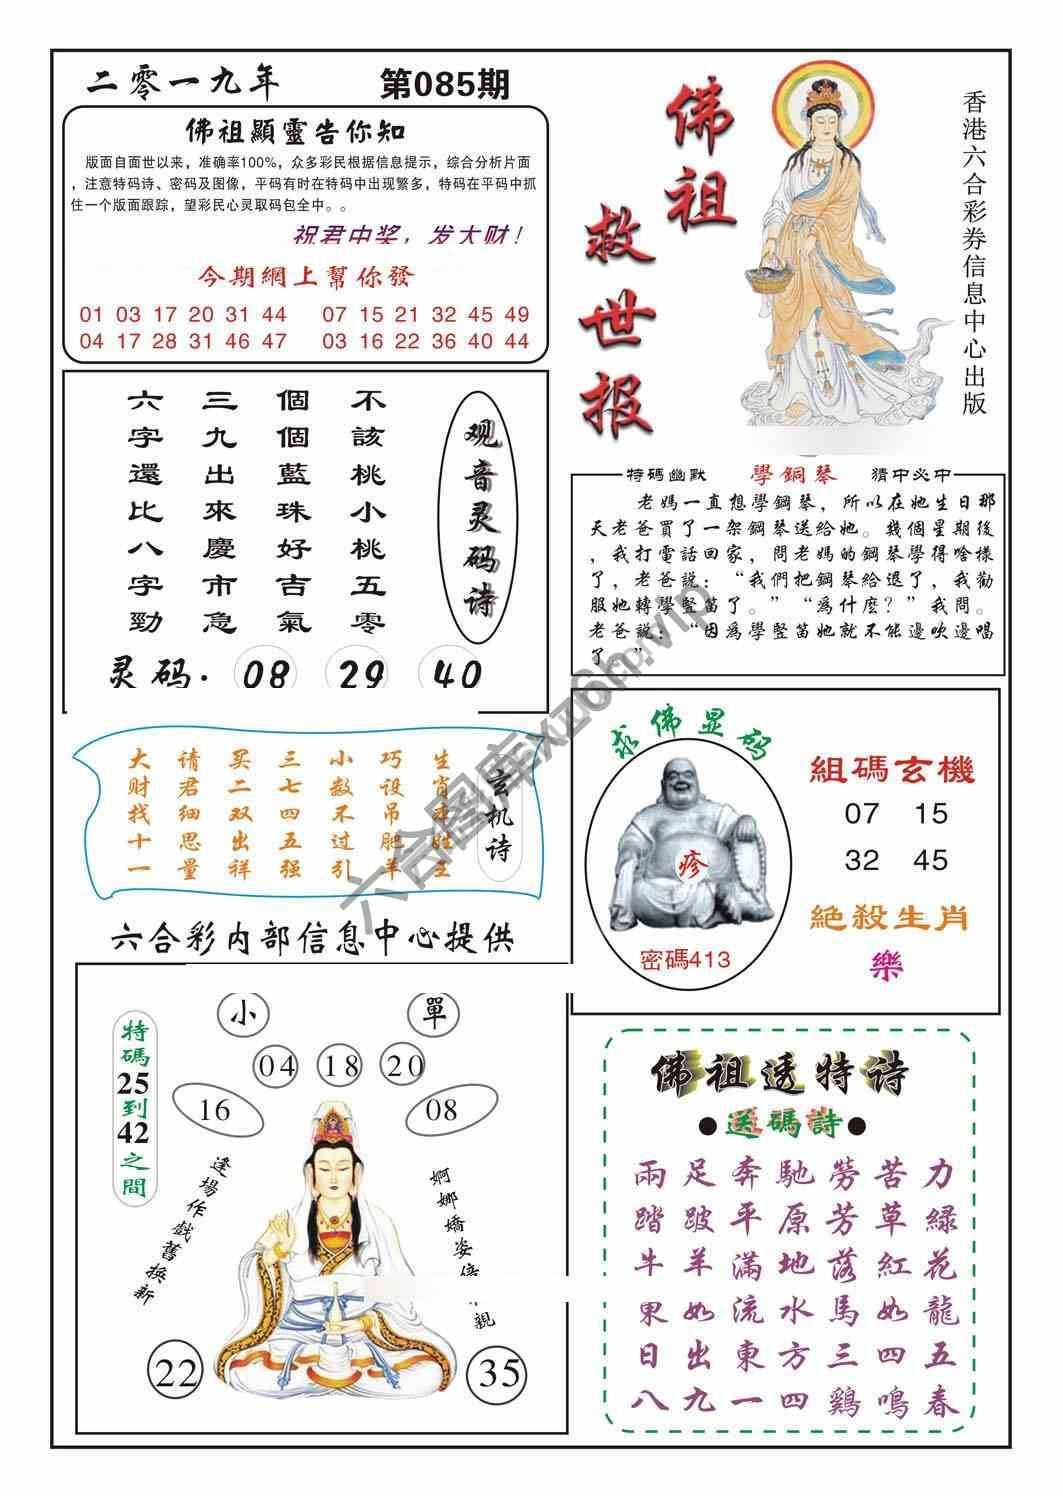 二零一九年
第085期
佛祖顯靈告你知
版面自面世以来，准确率100%，众多彩民根据信息提示，综合分析片面
，注意特码诗、密码及图像，平码有时在特码中出现繁多，特码在平码中抓
住一个版面跟踪，望彩民心灵取码包全中。。
祝君中奖，发大财！
今期網上幫你發
01 03 17 20 31 44 07 15 21 32 45 49
04 17 28 31 46 47 03 16 22 36 40 44
佛祖
救世报
香港六合彩券信息中心出版
观音灵码诗
不該桃小桃五零
個個藍珠好吉氣
三九出來慶市急
六字還比八字勁
灵码. 08 29 40
特碼幽默 學銅琴 猜中必中
老媽一直想學鋼琴，所以在她生日那
天老爸買了一架鋼琴送給她。幾個星期後
，我打電話回家，問老媽的鋼琴學得啥樣
了，老爸説：“我們把鋼琴給退了，我勸
服她轉學竪笛了。”“爲什麽？”我問。
老爸説：“因爲學竪笛她就不能邊吹邊唱
了。”
玄机诗
生肖本姓王
巧设吊肥羊
小数不过引
三七四五强
买二双出祥
请君细思量
大财找十一
六合彩内部信息中心提供
求佛显码
疹
密碼413
組碼玄機
07 15
32 45
絶殺生肖
樂
小 單
04 18 20
16 08
特碼25到42之間
逢場作戲舊換新
婀娜嬌姿倍 親
22 35
佛祖透特诗
●送碼詩●
兩足奔馳勞苦力
踏跛平原芳草緑
牛羊滿地落紅花
車如流水馬如龍
日出東方三四五
八九一四鷄鳴春
六合图库xz6h.vip